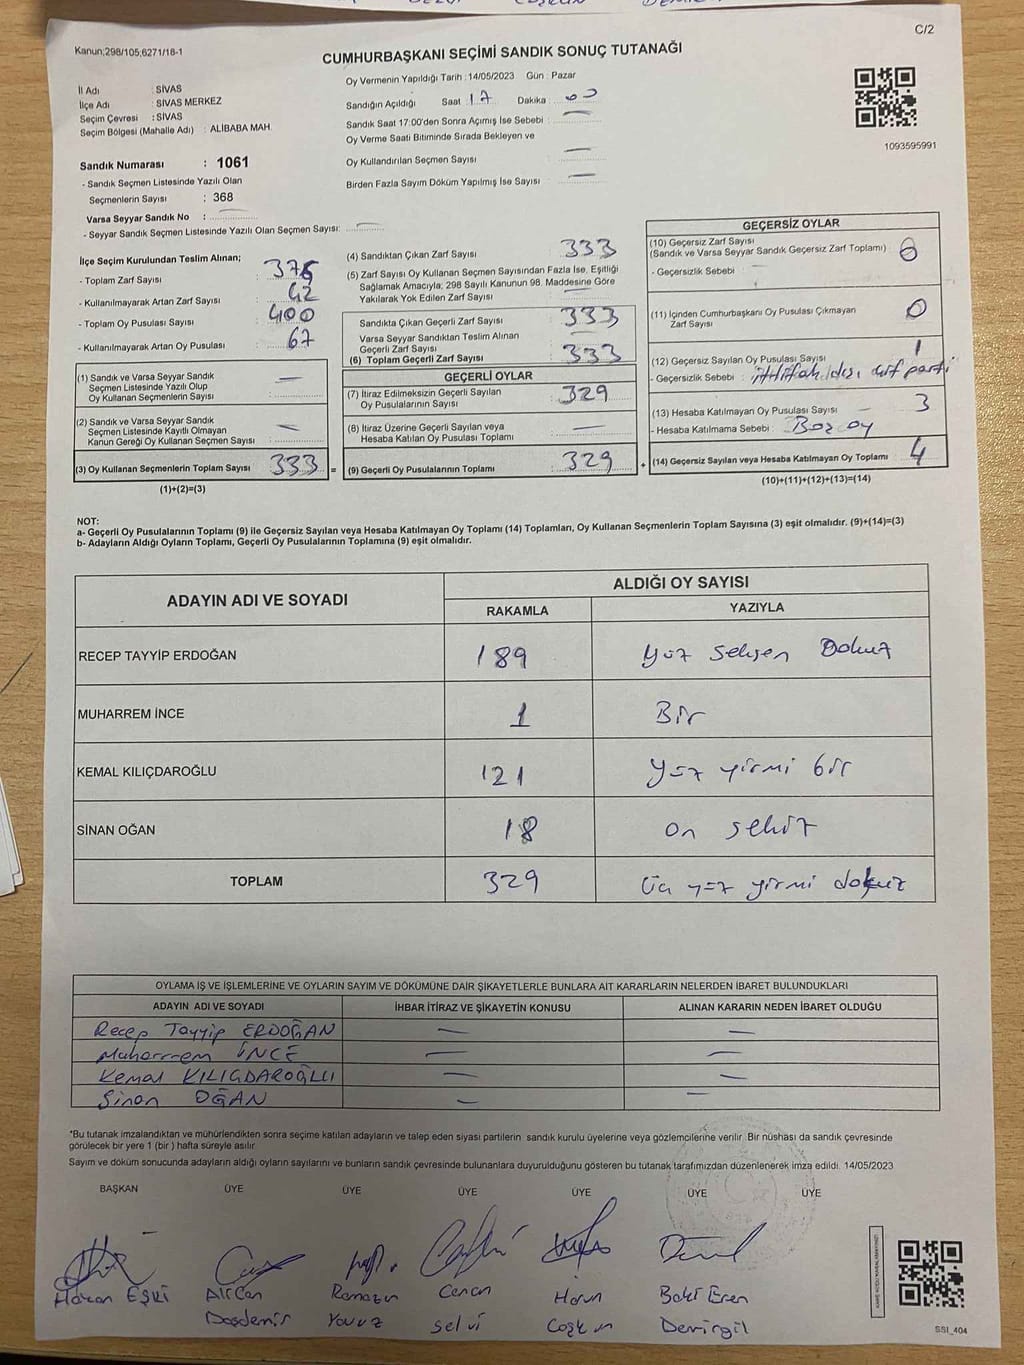 C/2
Kanun;298/105;6271/18-1
CUMHURBAŞKANI SEÇİMİ SANDIK SONUÇ TUTANAĞI
İl Adı : SİVAS
İlçe Adı : SİVAS MERKEZ
Seçim Çevresi : SİVAS
Seçim Bölgesi (Mahalle Adı) : ALİBABA MAH.
Sandık Numarası : 1061
- Sandık Seçmen Listesinde Yazılı Olan
Seçmenlerin Sayısı : 368
Varsa Seyyar Sandık No :
- Seyyar Sandık Seçmen Listesinde Yazılı Olan Seçmen Sayısı:
Oy Vermenin Yapıldığı Tarih : 14/05/2023 Gün : Pazar
Sandığın Açıldığı Saat : 17 Dakika : 00
Sandık Saat 17:00'den Sonra Açımış İse Sebebi :
Oy Verme Saati Bitiminde Sırada Bekleyen ve
Oy Kullandırılan Seçmen Sayısı :
Birden Fazla Sayım Döküm Yapılmış İse Sayısı :
1093595991
İlçe Seçim Kurulundan Teslim Alınan;
- Toplam Zarf Sayısı : 375
- Kullanılmayarak Artan Zarf Sayısı : 42
- Toplam Oy Pusulası Sayısı : 400
- Kullanılmayarak Artan Oy Pusulası : 67
(1) Sandık ve Varsa Seyyar Sandık
Seçmen Listesinde Yazılı Olup
Oy Kullanan Seçmenlerin Sayısı : —
(2) Sandık ve Varsa Seyyar Sandık
Seçmen Listesinde Kayıtlı Olmayan
Kanun Gereği Oy Kullanan Seçmen Sayısı : —
(3) Oy Kullanan Seçmenlerin Toplam Sayısı : 333 =
(1)+(2)=(3)
(4) Sandıktan Çıkan Zarf Sayısı : 333
(5) Zarf Sayısı Oy Kullanan Seçmen Sayısından Fazla İse, Eşitliği
Sağlamak Amacıyla; 298 Sayılı Kanunun 98. Maddesine Göre
Yakılarak Yok Edilen Zarf Sayısı : —
Sandıkta Çıkan Geçerli Zarf Sayısı : 333
Varsa Seyyar Sandıktan Teslim Alınan
Geçerli Zarf Sayısı :
(6) Toplam Geçerli Zarf Sayısı : 333
GEÇERLİ OYLAR
(7) İtiraz Edilmeksizin Geçerli Sayılan
Oy Pusulalarının Sayısı : 329
(8) İtiraz Üzerine Geçerli Sayılan veya
Hesaba Katılan Oy Pusulası Toplamı : —
(9) Geçerli Oy Pusulalarının Toplamı : 329 +
GEÇERSİZ OYLAR
(10) Geçersiz Zarf Sayısı
(Sandık ve Varsa Seyyar Sandık Geçersiz Zarf Toplamı) : 0
- Geçersizlik Sebebi : —
(11) İçinden Cumhurbaşkanı Oy Pusulası Çıkmayan
Zarf Sayısı : 0
(12) Geçersiz Sayılan Oy Pusulası Sayısı : 1
- Geçersizlik Sebebi : ittifak dışı çift parti
(13) Hesaba Katılmayan Oy Pusulası Sayısı 3
- Hesaba Katılmama Sebebi : Boş oy
(14) Geçersiz Sayılan veya Hesaba Katılmayan Oy Toplamı : 4
(10)+(11)+(12)+(13)=(14)
NOT:
a- Geçerli Oy Pusulalarının Toplamı (9) ile Geçersiz Sayılan veya Hesaba Katılmayan Oy Toplamı (14) Toplamları, Oy Kullanan Seçmenlerin Toplam Sayısına (3) eşit olmalıdır. (9)+(14)=(3)
b- Adayların Aldığı Oyların Toplamı, Geçerli Oy Pusulalarının Toplamına (9) eşit olmalıdır.
ADAYIN ADI VE SOYADI
ALDIĞI OY SAYISI
RAKAMLA YAZIYLA
RECEP TAYYİP ERDOĞAN 189 Yüz seksen Dokuz
MUHARREM İNCE 1 Bir
KEMAL KILIÇDAROĞLU 121 Yüz yirmi bir
SİNAN OĞAN 18 on sekiz
TOPLAM 329 Üç yüz yirmi dokuz
OYLAMA İŞ VE İŞLEMLERİNE VE OYLARIN SAYIM VE DÖKÜMÜNE DAİR ŞİKAYETLERLE BUNLARA AİT KARARLARIN NELERDEN İBARET BULUNDUKLARI
ADAYIN ADI VE SOYADI İHBAR İTİRAZ VE ŞİKAYETİN KONUSU ALINAN KARARIN NEDEN İBARET OLDUĞU
Recep Tayyip ERDOĞAN — —
Muharrem İNCE — —
Kemal KILIÇDAROĞLU — —
Sinan OĞAN — —
*Bu tutanak imzalandıktan ve mühürlendikten sonra seçime katılan adayların ve talep eden siyasi partilerin sandık kurulu üyelerine veya gözlemcilerine verilir. Bir nüshası da sandık çevresinde
görülecek bir yere 1 (bir ) hafta süreyle asılır.
Sayım ve döküm sonucunda adayların aldığı oyların sayılarını ve bunların sandık çevresinde bulunanlara duyurulduğunu gösteren bu tutanak tarafımızdan düzenlenerek imza edildi. 14/05/2023
BAŞKAN ÜYE ÜYE ÜYE ÜYE ÜYE ÜYE
Hakan Eski Alican Ramazan Canan Harun Baki Eren
Daşdemir Yavuz Selvi Coşkun Demirgil
SSI_404